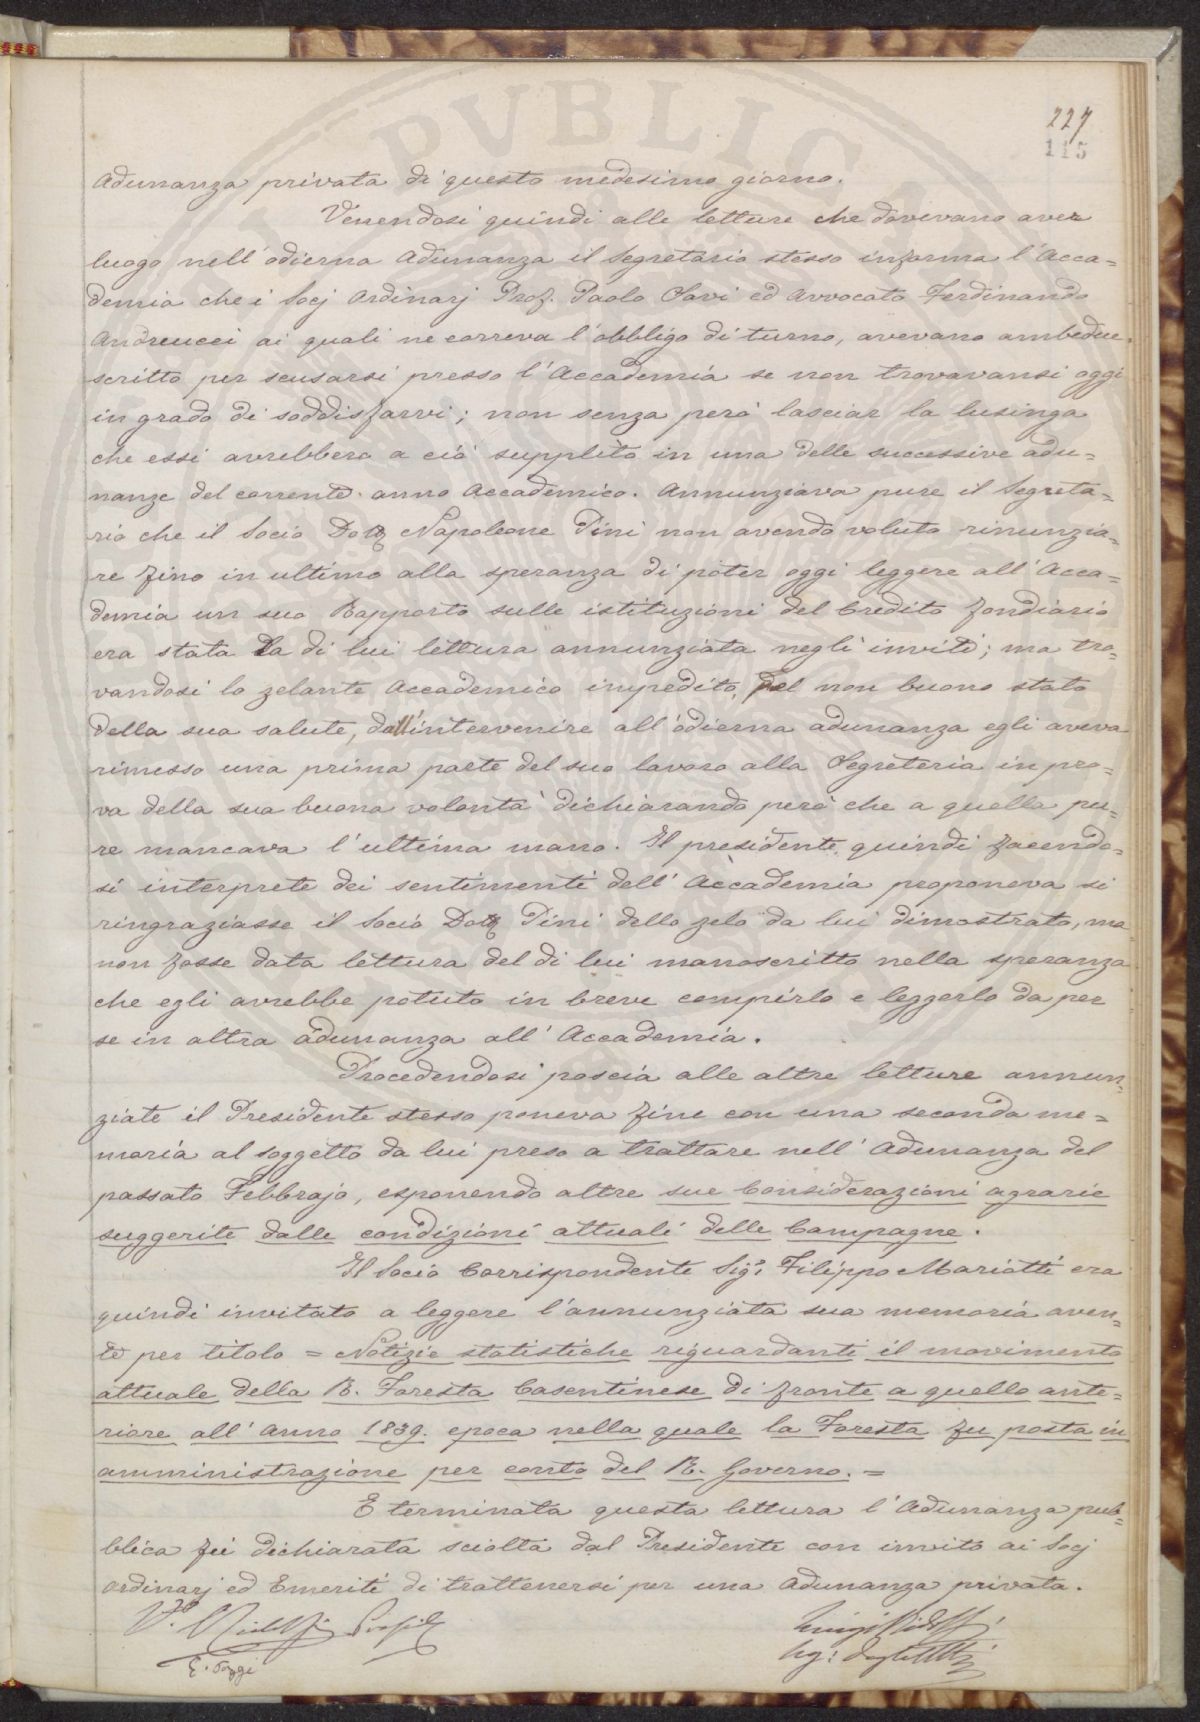 227
115
Adunanza privata di questo medesimo giorno.
Venendosi quindi alle letture che dovevano aver
luogo nell'odierna Adunanza il Segretario stesso informa l'Acca=
demia che i Socj Ordinarj Prof. Paolo Savi ed Avvocato Ferdinando
Andreucci ai quali ne correva l'obbligo di turno, avevano ambedue
scritto per scusarsi presso l'Accademia se non trovavansi oggi
in grado di soddisfarvi; non senza però lasciar la lusinga
che essi avrebbero a ciò supplito in una delle successive adu=
nanze del corrente anno Accademico. Annunziava pure il Segreta=
rio che il Socio Dott. Napoleone Pini non avendo voluto rinunzia=
re fino in ultimo alla speranza di poter oggi leggere all'Acca=
demia un suo Rapporto sulle istituzioni del Credito fondiario
era stata la di lui lettura annunziata negli inviti; ma tro=
vandosi lo zelante Accademico impedito, pel non buono stato
della sua salute, dall'intervenire all'odierna adunanza egli aveva
rimesso una prima parte del suo lavoro alla Segreteria in pro=
va della sua buona volontà dichiarando però che a quella pu=
re mancava l'ultima mano. Il presidente quindi facendo=
si interprete dei sentimenti dell'Accademia proponeva si
ringraziasse il Socio Dott. Pini dello zelo da lui dimostrato, ma
non fosse data lettura del di lui manoscritto nella speranza
che egli avrebbe potuto in breve compirlo e leggerlo da per
se in altra adunanza all'Accademia.
Procedendosi poscia alle altre letture annun=
ziate il Presidente stesso poneva fine con una seconda me=
moria al soggetto da lui preso a trattare nell'Adunanza del
passato Febbrajo, esponendo altre sue Considerazioni agrarie
suggerite dalle condizioni attuali delle Campagne.
Il Socio Corrispondente Sigr. Filippo Mariotti era
quindi invitato a leggere l'annunziata sua memoria aven=
te per titolo = Notizie statistiche riguardanti il movimento
attuale della R. Foresta Casentinese di fronte a quello ante=
riore all'anno 1839. epoca nella quale la Foresta fu posta in
amministrazione per conto del R. Governo. =
E terminata questa lettura l'Adunanza pub=
blica fu dichiarata sciolta dal Presidente con invito ai Socj
ordinarj ed Emeriti di trattenersi per una Adunanza privata.
V.o Ridolfi Presid.
Luigi Ridolfi
E. Poggi
Seg: